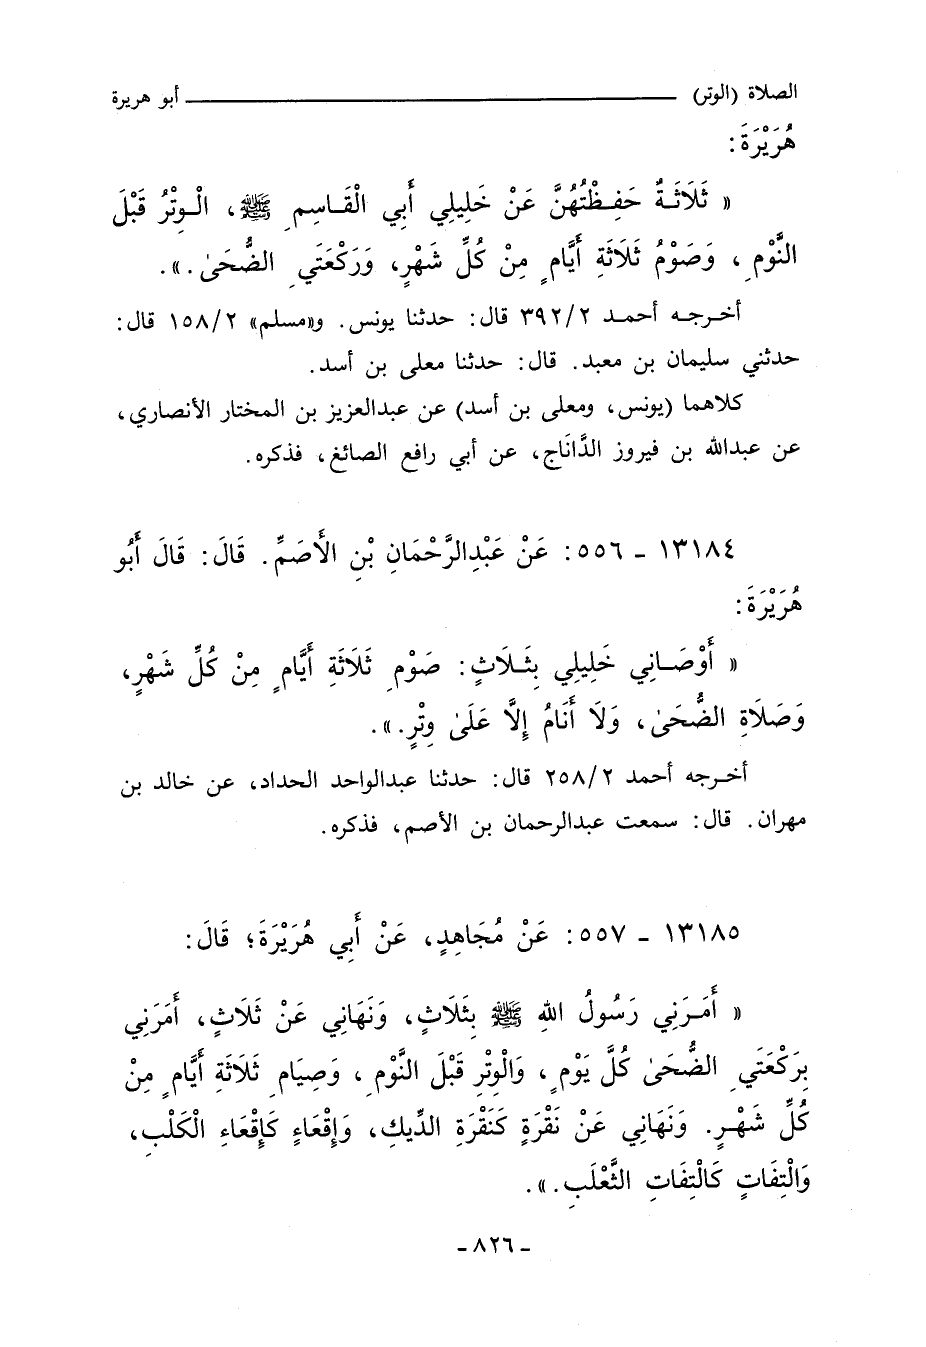 الصلاة (الوتر) ـــــــــــــــــــــــــــــــــ أبو هريرة
هُرَيْرَةَ:
« ثَلَاثَـةٌ حَفِـظْتُهُنَّ عَنْ خَلِيلِي أَبِي الْقَـاسِمِ ﷺ، الْـوِتْرُ قَبْلَ
النَّوْمِ، وَصَوْمُ ثَلَاثَةِ أَيَّامٍ مِنْ كُلِّ شَهْرٍ، وَرَكْعَتَيِ الضُّحَىٰ.».
أخـرجـه أحمـد ٣٩٢/٢ قال: حدثنا يونس. و«مسلم» ١٥٨/٢ قال:
حدثني سليمان بن معبد. قال: حدثنا معلى بن أسد.
كلاهما (يونس، ومعلى بن أسد) عن عبدالعزيز بن المختار الأنصاري،
عن عبدالله بن فيروز الدَّانَاج، عن أبي رافع الصائغ، فذكره.
١٣١٨٤ ـ ٥٥٦: عَنْ عَبْدِالرَّحْمَانِ بْنِ الأَصَمِّ. قَالَ: قَالَ أَبُو
هُرَيْرَةَ:
« أَوْصَـانِي خَلِيلِي بِثَـلَاثٍ: صَوْمِ ثَلَاثَةِ أَيَّامٍ مِنْ كُلِّ شَهْرٍ،
وَصَلَاةِ الضُّحَىٰ، وَلَا أَنَامُ إِلَّا عَلَىٰ وِتْرٍ.».
أخـرجه أحمد ٢٥٨/٢ قال: حدثنا عبدالواحد الحداد، عن خالد بن
مهران. قال: سمعت عبدالرحمان بن الأصم، فذكره.
١٣١٨٥ ـ ٥٥٧: عَنْ مُجَاهِدٍ، عَنْ أَبِي هُرَيْرَةَ؛ قَالَ:
« أَمَـرَنِي رَسُولُ اللهِ ﷺ بِثَلَاثٍ، وَنَهَانِي عَنْ ثَلَاثٍ، أَمَرَنِي
بِرَكْعَتَيِ الضُّحَىٰ كُلَّ يَوْمٍ، وَالْوِتْرِ قَبْلَ النَّوْمِ، وَصِيَامِ ثَلَاثَةِ أَيَّامٍ مِنْ
كُلِّ شَهْـرٍ. وَنَهَانِي عَنْ نَقْرَةٍ كَنَقْرَةِ الدِّيكِ، وَإِقْعَاءٍ كَإِقْعَاءِ الْكَلْبِ،
وَالْتِفَاتٍ كَالْتِفَاتِ الثَّعْلَبِ.».
ـ ٨٢٦ ـ